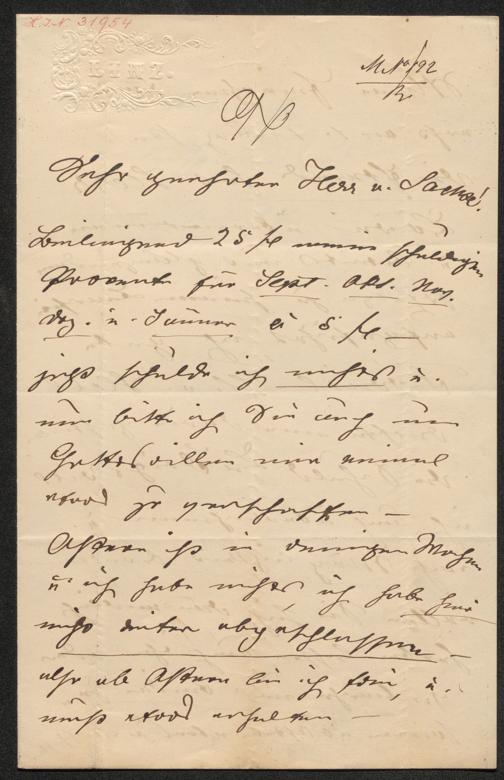 H.I.N. 31954
LINZ.
9/3
Sehr geehrter Herr v. Sacher!
Beiliegend 25 fl meine schuldigen
Procente für Sept. Okt. Nov.
Dez. u. Jänner à 5 fl –
jetzt schulde ich nichts u.
nun bitte ich Sie auch um
Gotteswillen mir einmal
etwas zu verschaffen –
Ostern ist in wenigen Wochen
u. ich habe nichts, ich habe hier
nicht weiter abgeschlossen –
also ab Ostern bin ich frei, u.
muß etwas erhalten –